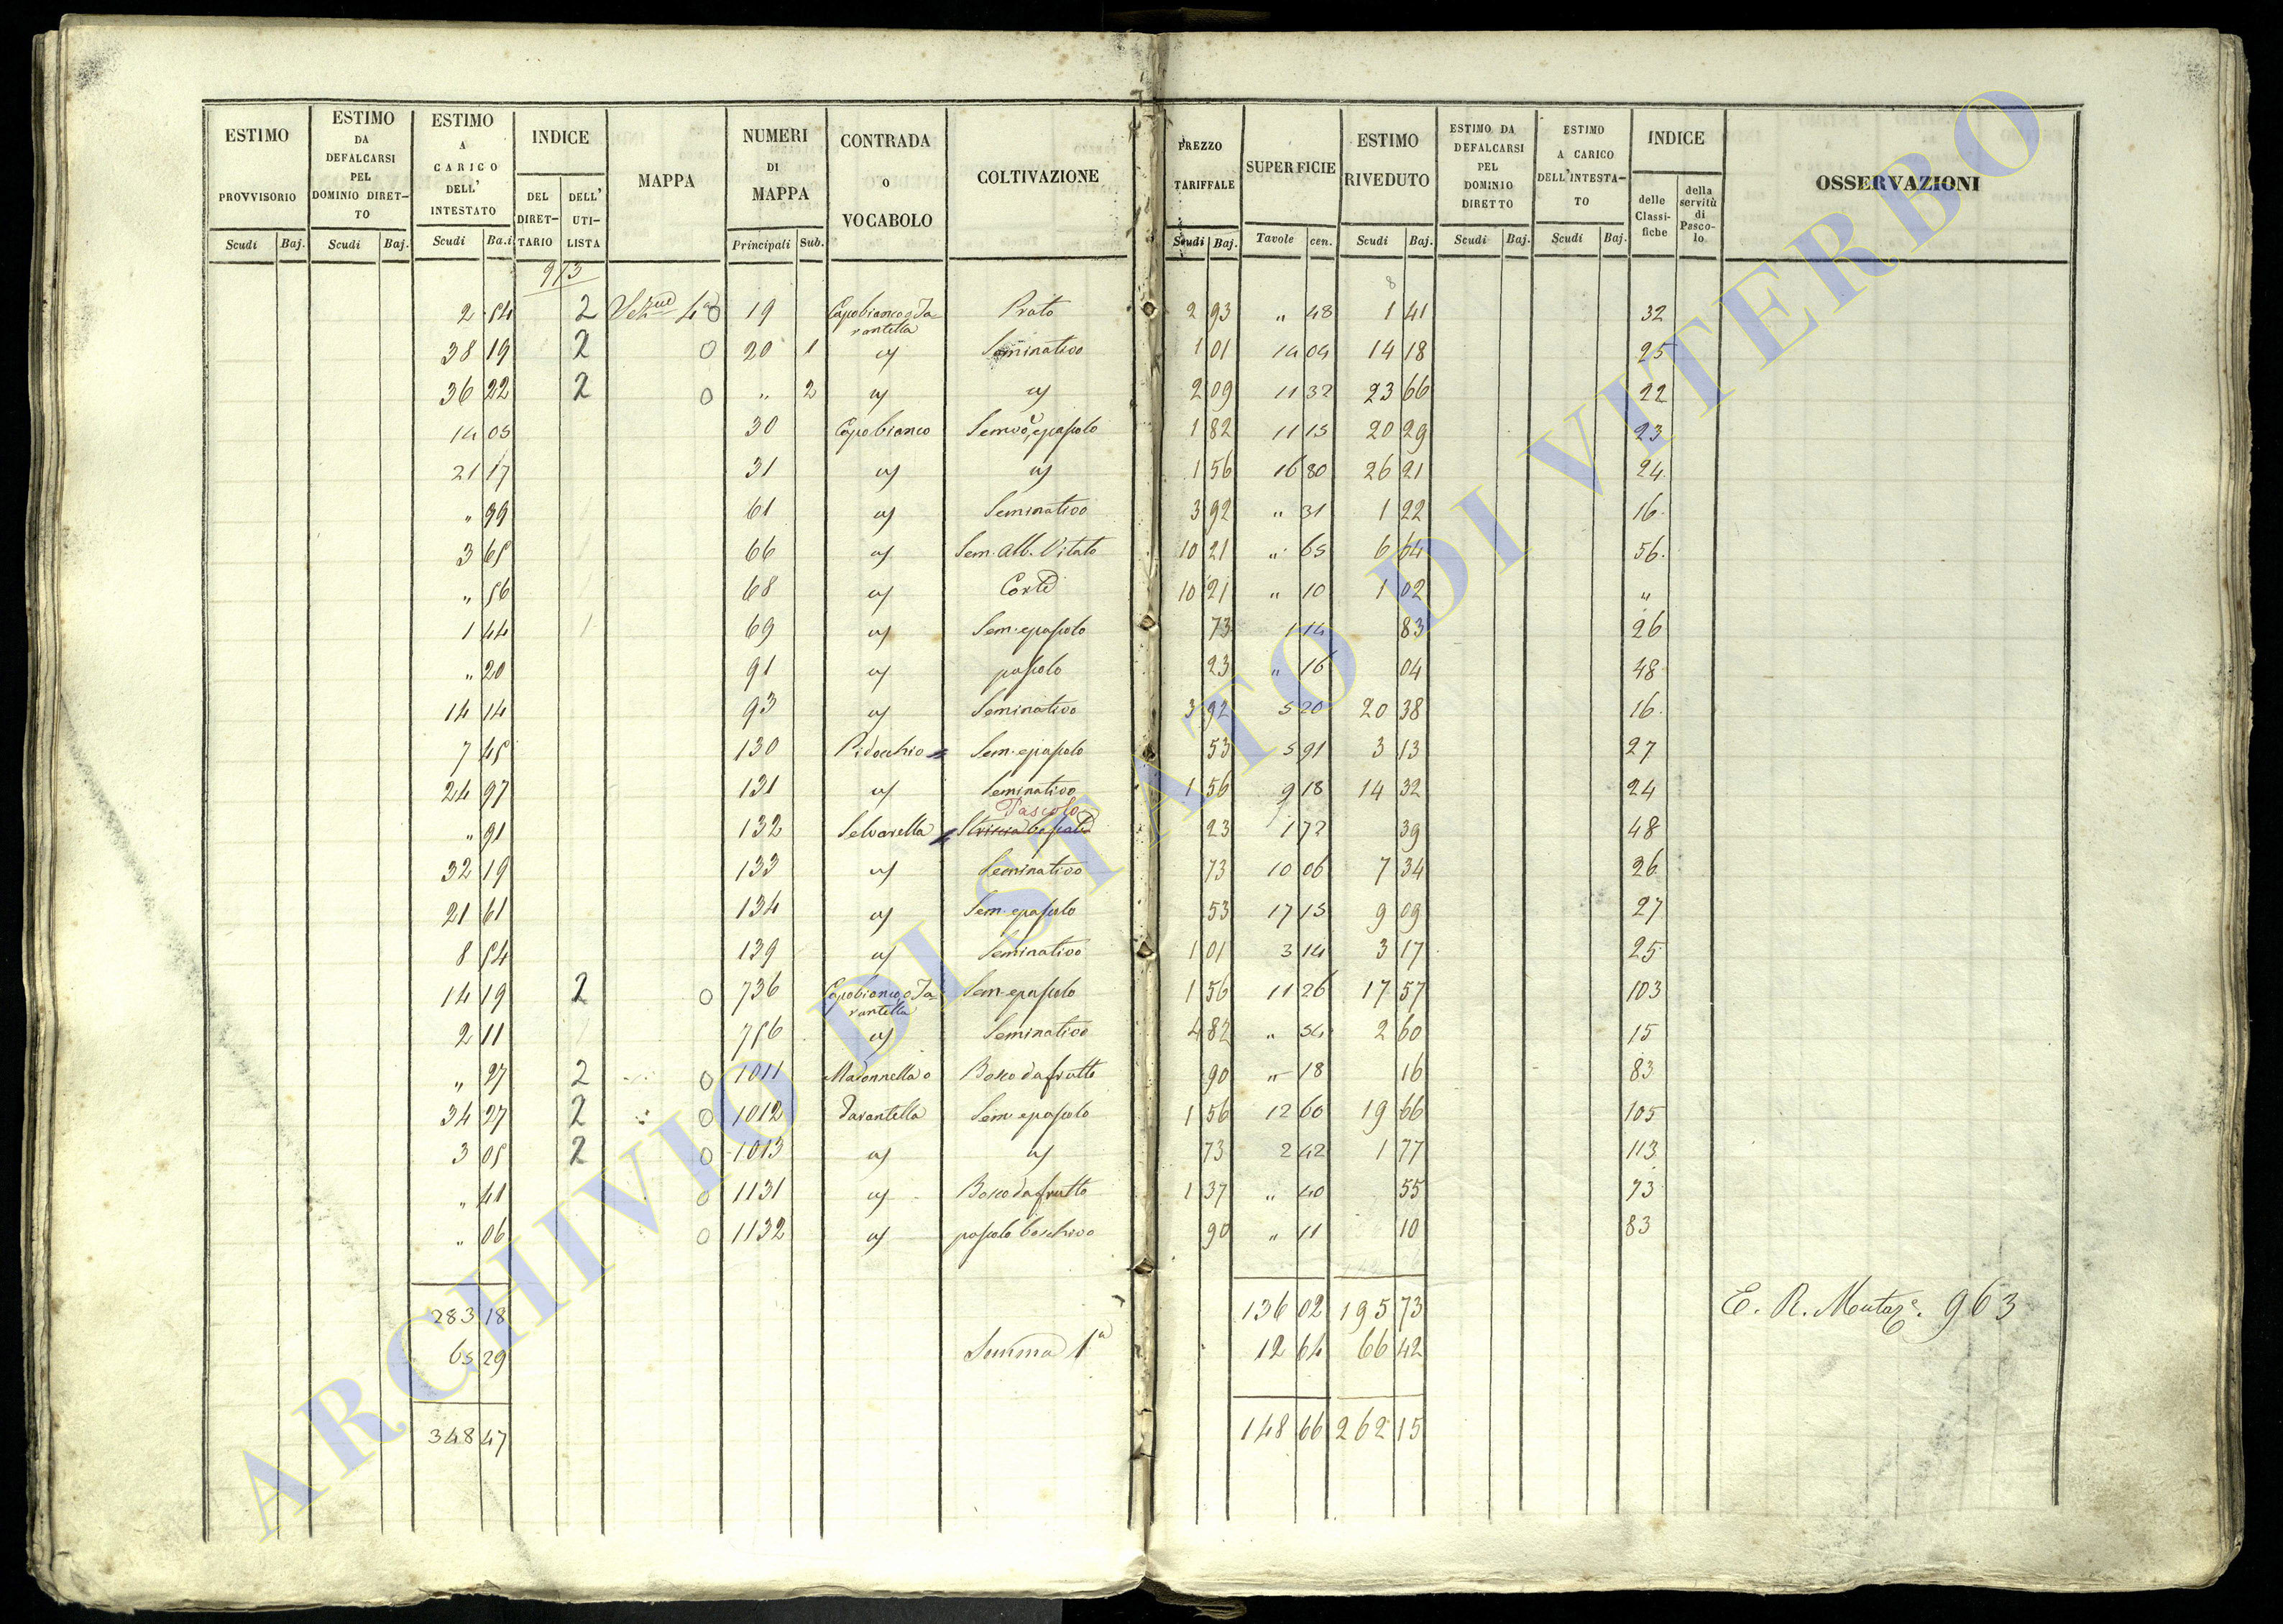 ESTIMO PROVVISORIO Scudi Baj.
ESTIMO DA DEFALCARSI PEL DOMINIO DIRETTO Scudi Baj.
ESTIMO A CARICO DELL' INTESTATO Scudi Ba.i
INDICE DEL DIRETTARIO DELL' UTILISTA
MAPPA
NUMERI DI MAPPA Principali Sub.
CONTRADA O VOCABOLO
COLTIVAZIONE
PREZZO TARIFFALE Scudi Baj.
SUPERFICIE Tavole cen.
ESTIMO RIVEDUTO Scudi Baj.
ESTIMO DA DEFALCARSI PEL DOMINIO DIRETTO Scudi Baj.
ESTIMO A CARICO DELL'INTESTATO Scudi Baj.
INDICE delle Classifiche della servitù di Pascolo
OSSERVAZIONI
913
2 54 2 Sez.ne 4a 0 19 Capobianco o Tarantella Prato 2 93 " 48 1 41 32
38 19 2 0 20 1 Seminativo 1 01 14 04 14 18 25
36 22 2 0 " 2 2 09 11 32 23 66 22
14 05 30 Capobianco Semvo e pascolo 1 82 11 15 20 29 23
21 17 31 1 56 16 80 26 21 24
" 99 61 Seminativo 3 92 " 31 1 22 16
3 65 66 Sem. Alb. Vitato 10 21 " 65 6 64 56
" 56 68 Corte 10 21 " 10 1 02 "
1 44 1 69 Sem. e pascolo 73 1 14 83 26
" 20 91 pascolo 23 " 16 04 48
14 14 93 Seminativo 3 92 5 20 20 38 16
7 45 130 Pidocchio Sem. e pascolo 53 5 91 3 13 27
24 97 131 Seminativo 1 56 9 18 14 32 24
" 91 132 Selvarella Pascolo 23 1 72 39 48
32 19 133 Seminativo 73 10 06 7 34 26
21 61 134 Sem. e pascolo 53 17 15 9 09 27
8 54 139 Seminativo 1 01 3 14 3 17 25
14 19 2 0 736 Capobianco o Tarantella Sem. e pascolo 1 56 11 26 17 57 103
2 11 756 Seminativo 4 82 " 54 2 60 15
" 27 2 0 1011 Madonnella o Bosco da frutto 90 " 18 16 83
34 27 2 0 1012 Tarantella Sem. e pascolo 1 56 12 60 19 66 105
3 05 2 0 1013 73 2 42 1 77 113
" 41 0 1131 Bosco da frutto 1 37 " 40 55 73
" 06 0 1132 pascolo boschivo 90 " 11 10 83
283 18 136 02 195 73 E. R. Montaze. 963
65 29 Summa 1a 12 64 66 42
348 47 148 66 262 15
ARCHIVIO DI STATO DI VITERBO